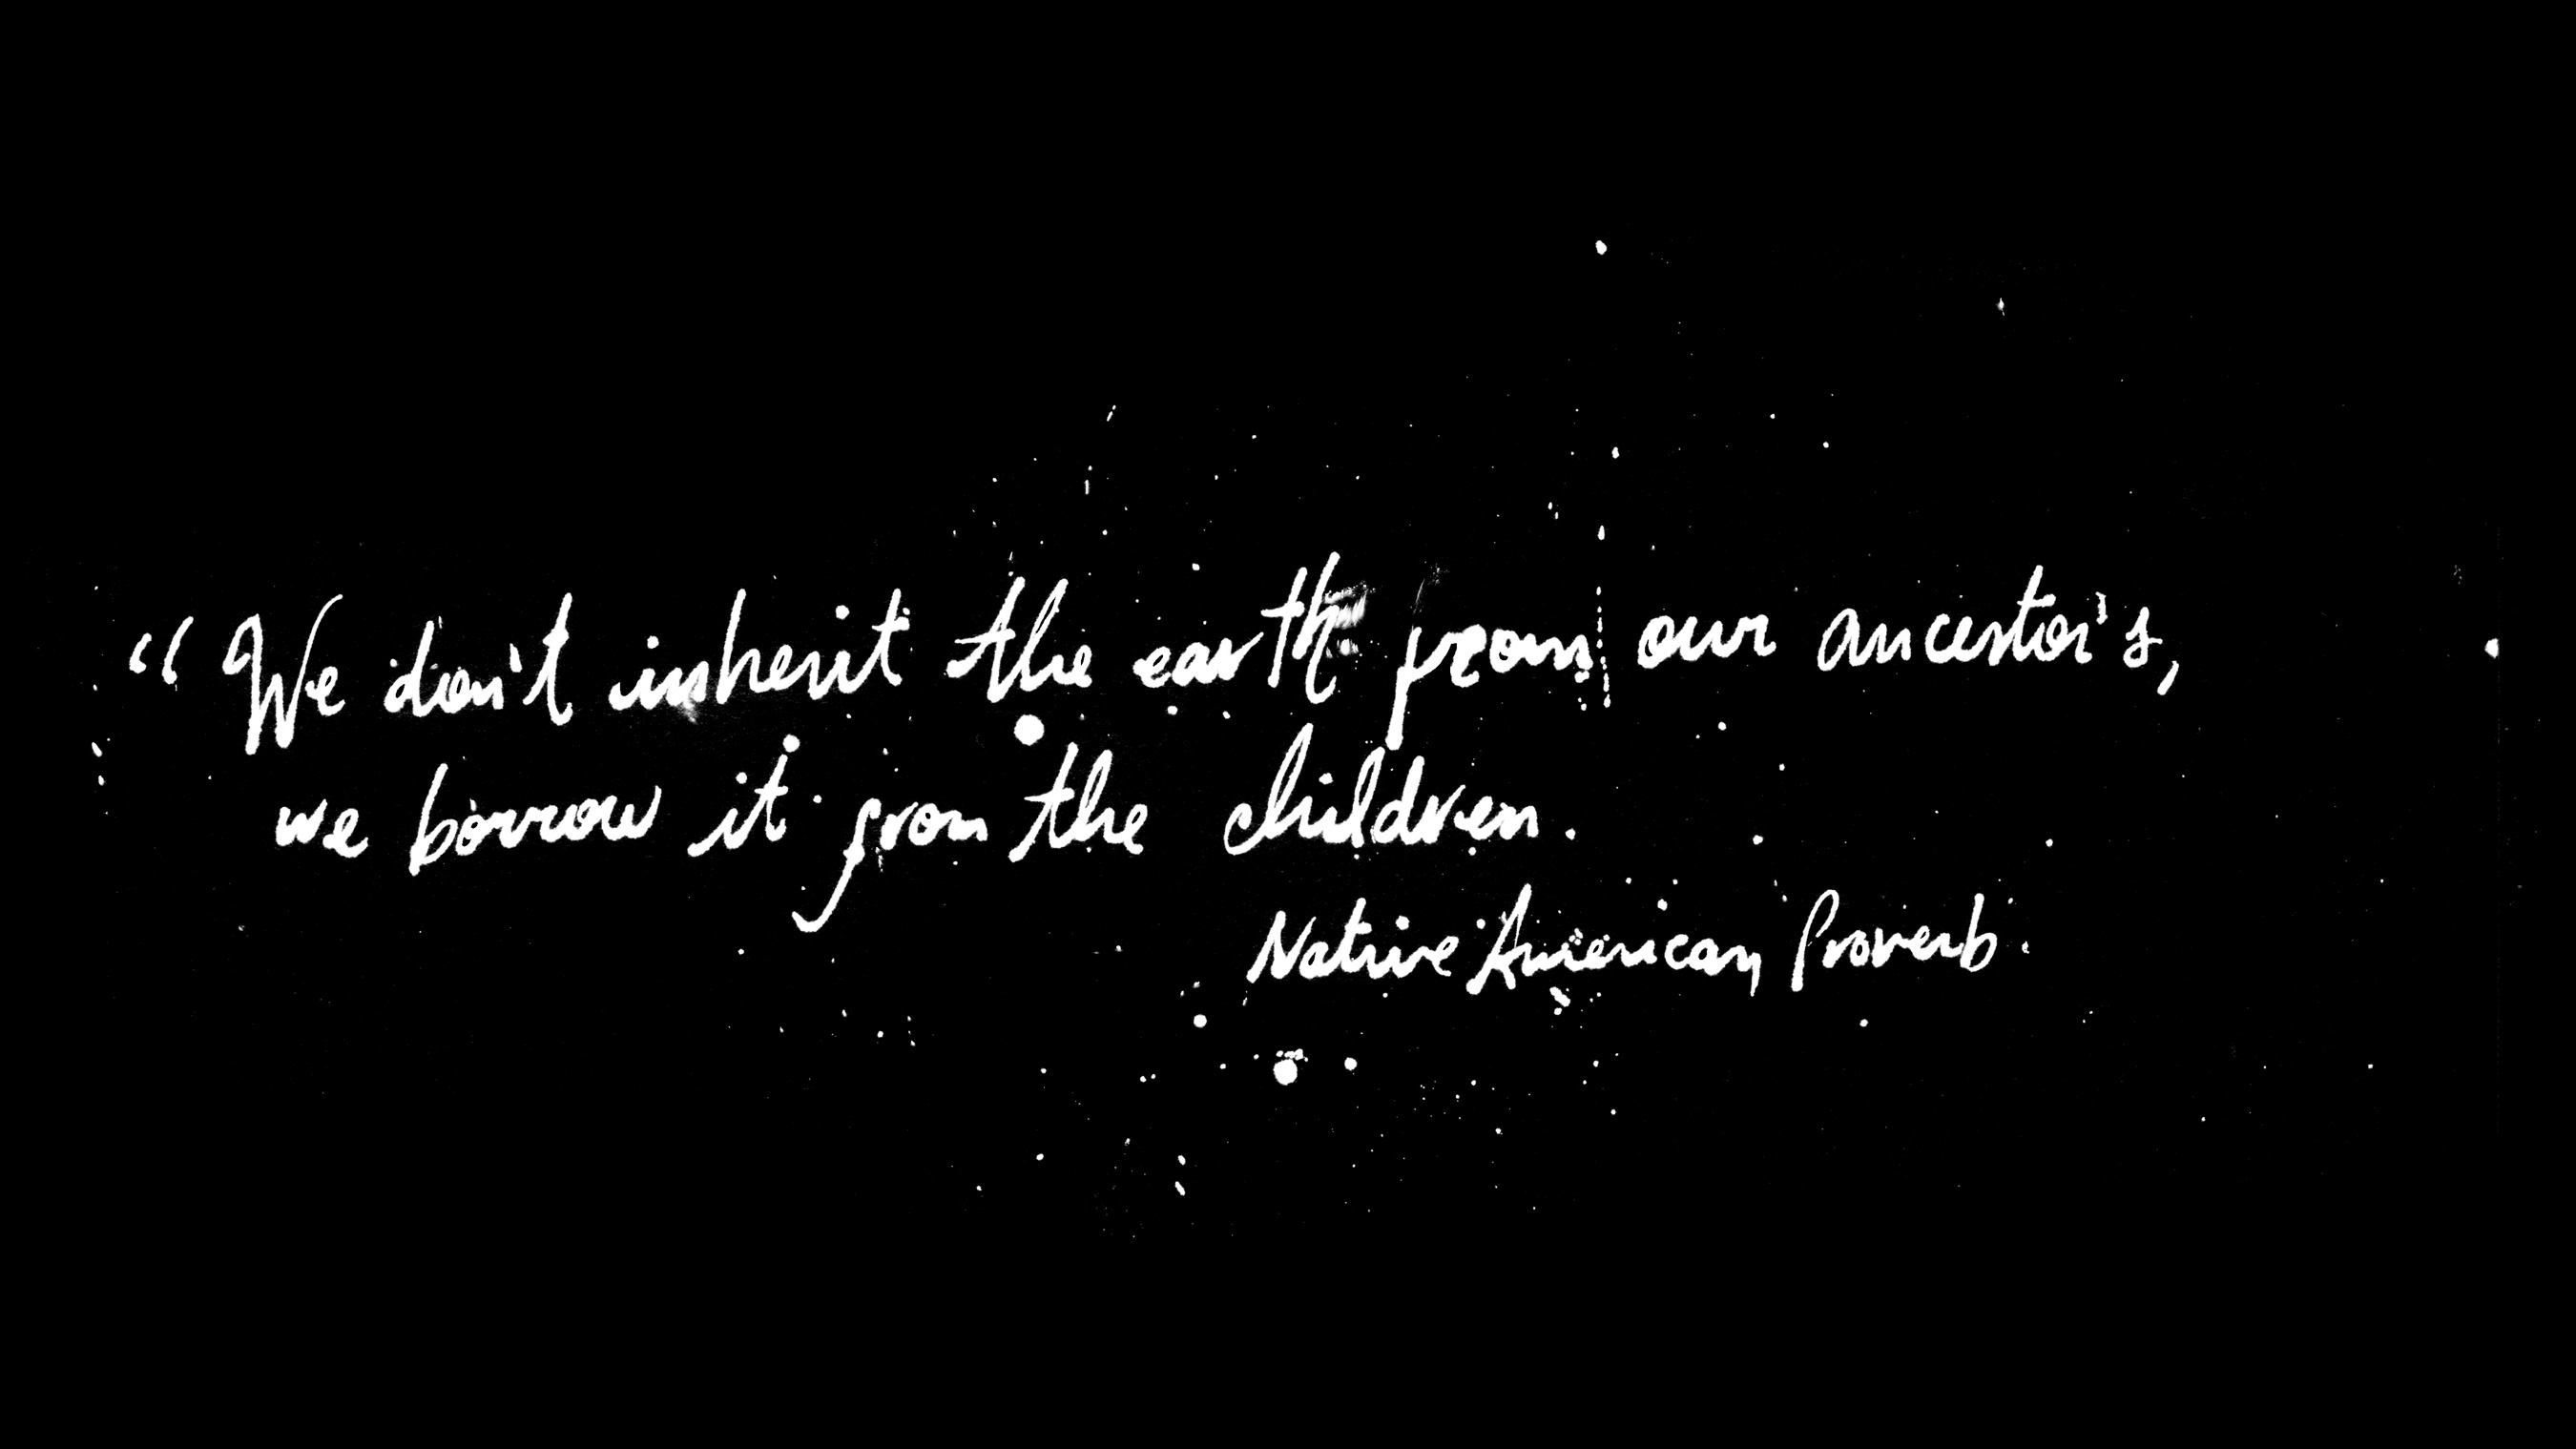 “We don't inherit the earth from our ancestor's,
we borrow it from the children.
Native American Proverb.